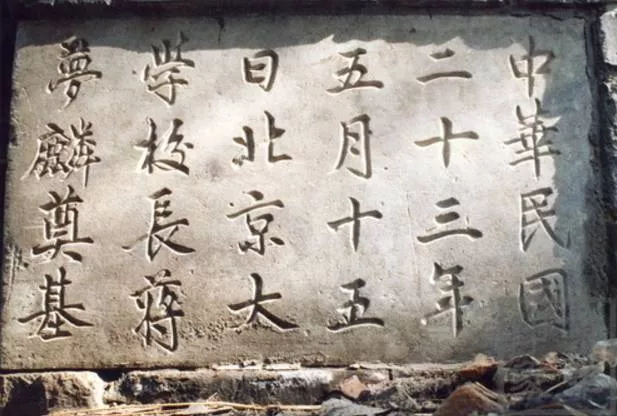 中華民國
二十三年
五月十五
日北京大
学校長蒋
夢麟奠基